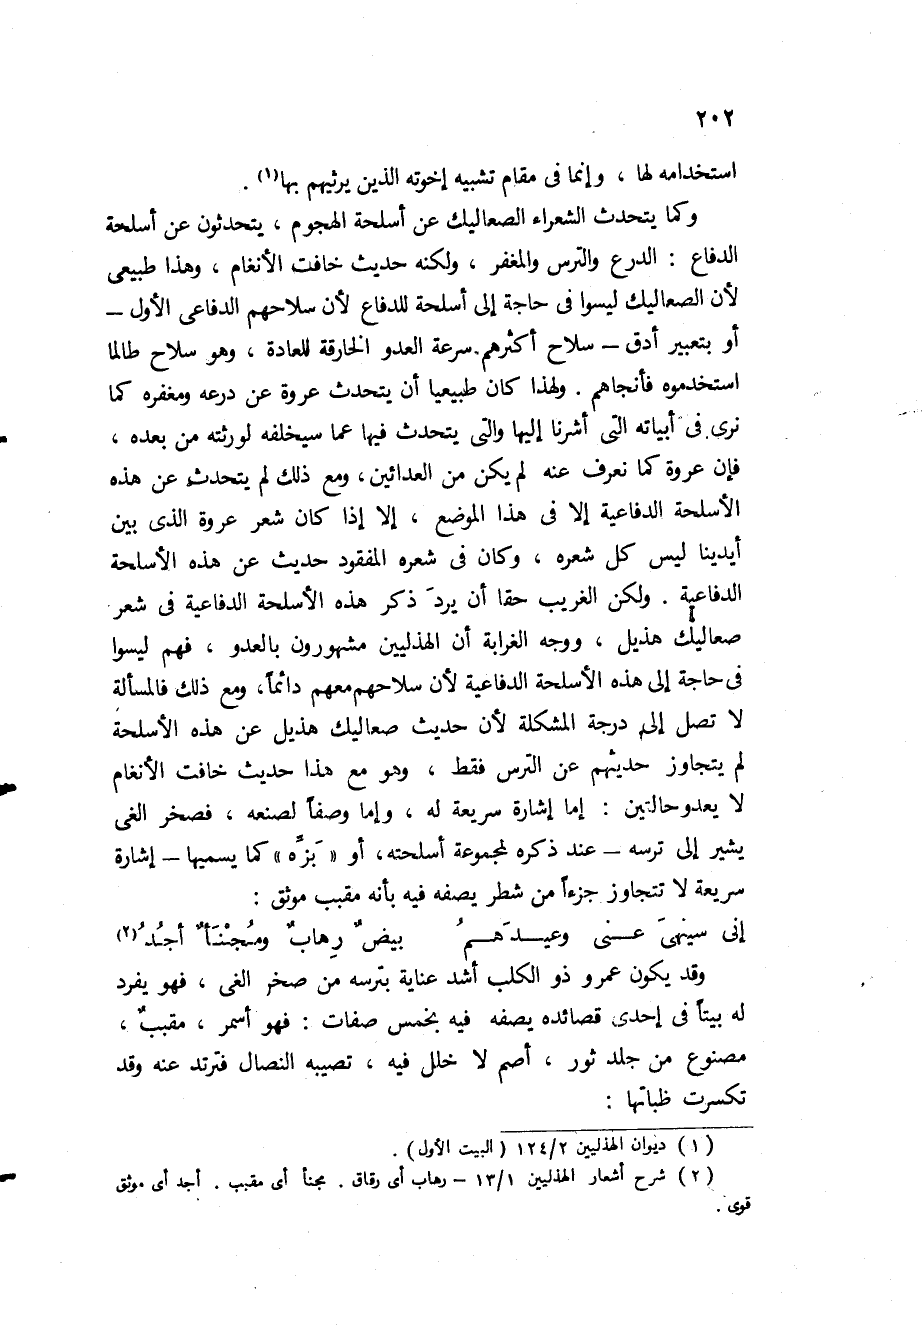 ٢٠٢
استخدامه لها ، وإنما فى مقام تشبيه إخوته الذين يرثيهم بها(١) .
وكما يتحدث الشعراء الصعاليك عن أسلحة الهجوم ، يتحدثون عن أسلحة
الدفاع : الدرع والترس والمغفر ، ولكنه حديث خافت الأنغام ، وهذا طبيعى
لأن الصعاليك ليسوا فى حاجة إلى أسلحة للدفاع لأن سلاحهم الدفاعى الأول –
أو بتعبير أدق – سلاح أكثرهم سرعة العدو الخارقة للعادة ، وهو سلاح طالما
استخدموه فأنجاهم . ولهذا كان طبيعيا أن يتحدث عروة عن درعه ومغفره كما
نرى فى أبياته التى أشرنا إليها والتى يتحدث فيها عما سيخلفه لورثته من بعده ،
فإن عروة كما نعرف عنه لم يكن من العدائين ، ومع ذلك لم يتحدث عن هذه
الأسلحة الدفاعية إلا فى هذا الموضع ، إلا إذا كان شعر عروة الذى بين
أيدينا ليس كل شعره ، وكان فى شعره المفقود حديث عن هذه الأسلحة
الدفاعية . ولكن الغريب حقا أن يردَ ذكر هذه الأسلحة الدفاعية فى شعر
صعاليك هذيل ، ووجه الغرابة أن الهذليين مشهورون بالعدو ، فهم ليسوا
فى حاجة إلى هذه الأسلحة الدفاعية لأن سلاحهم معهم دائماً ، ومع ذلك فالمسألة
لا تصل إلى درجة المشكلة لأن حديث صعاليك هذيل عن هذه الأسلحة
لم يتجاوز حديثهم عن الترس فقط ، وهو مع هذا حديث خافت الأنغام
لا يعدو حالتين : إما إشارة سريعة له ، وإما وصفاً لصنعه ، فصخر الغى
يشير إلى ترسه – عند ذكره لمجموعة أسلحته ، أو « بَزِّه » كما يسميها – إشارة
سريعة لا تتجاوز جزءاً من شطر يصفه فيه بأنه مقبب موثق :
إنى سينهىَ عــنى وعيــدَهــمُ بيضٌ رِهابٌ ومُجْنَأٌ أجُدُ(٢)
وقد يكون عمرو ذو الكلب أشد عناية بترسه من صخر الغى ، فهو يفرد
له بيتاً فى إحدى قصائده يصفه فيه بخمس صفات : فهو أسمر ، مقببٌ ،
مصنوع من جلد ثور ، أصم لا خلل فيه ، تصيبه النصال فترتد عنه وقد
تكسرت ظباتها :
(١) ديوان الهذليين ١٢٤/٢ (البيت الأول) .
(٢) شرح أشعار الهذليين ١٣/١ – رهاب أى رقاق . مجنأ أى مقبب . أجد أى موثق
قوى .